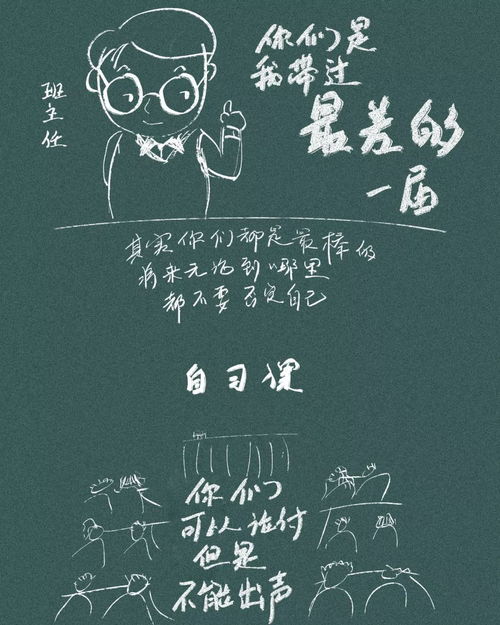 班主任
你们是
我带过
最差的
一届
其实你们都是最棒的
将来无论到哪里
都不要否定自己
自习课
你们
可以说付
但是
不能出声